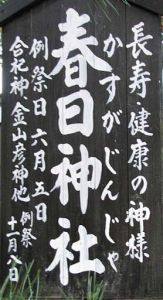 長寿・健康の神様
かすがじんじゃ
春日神社
例祭日 六月五日
合祀神 金山彦神他 例祭 十一月八日